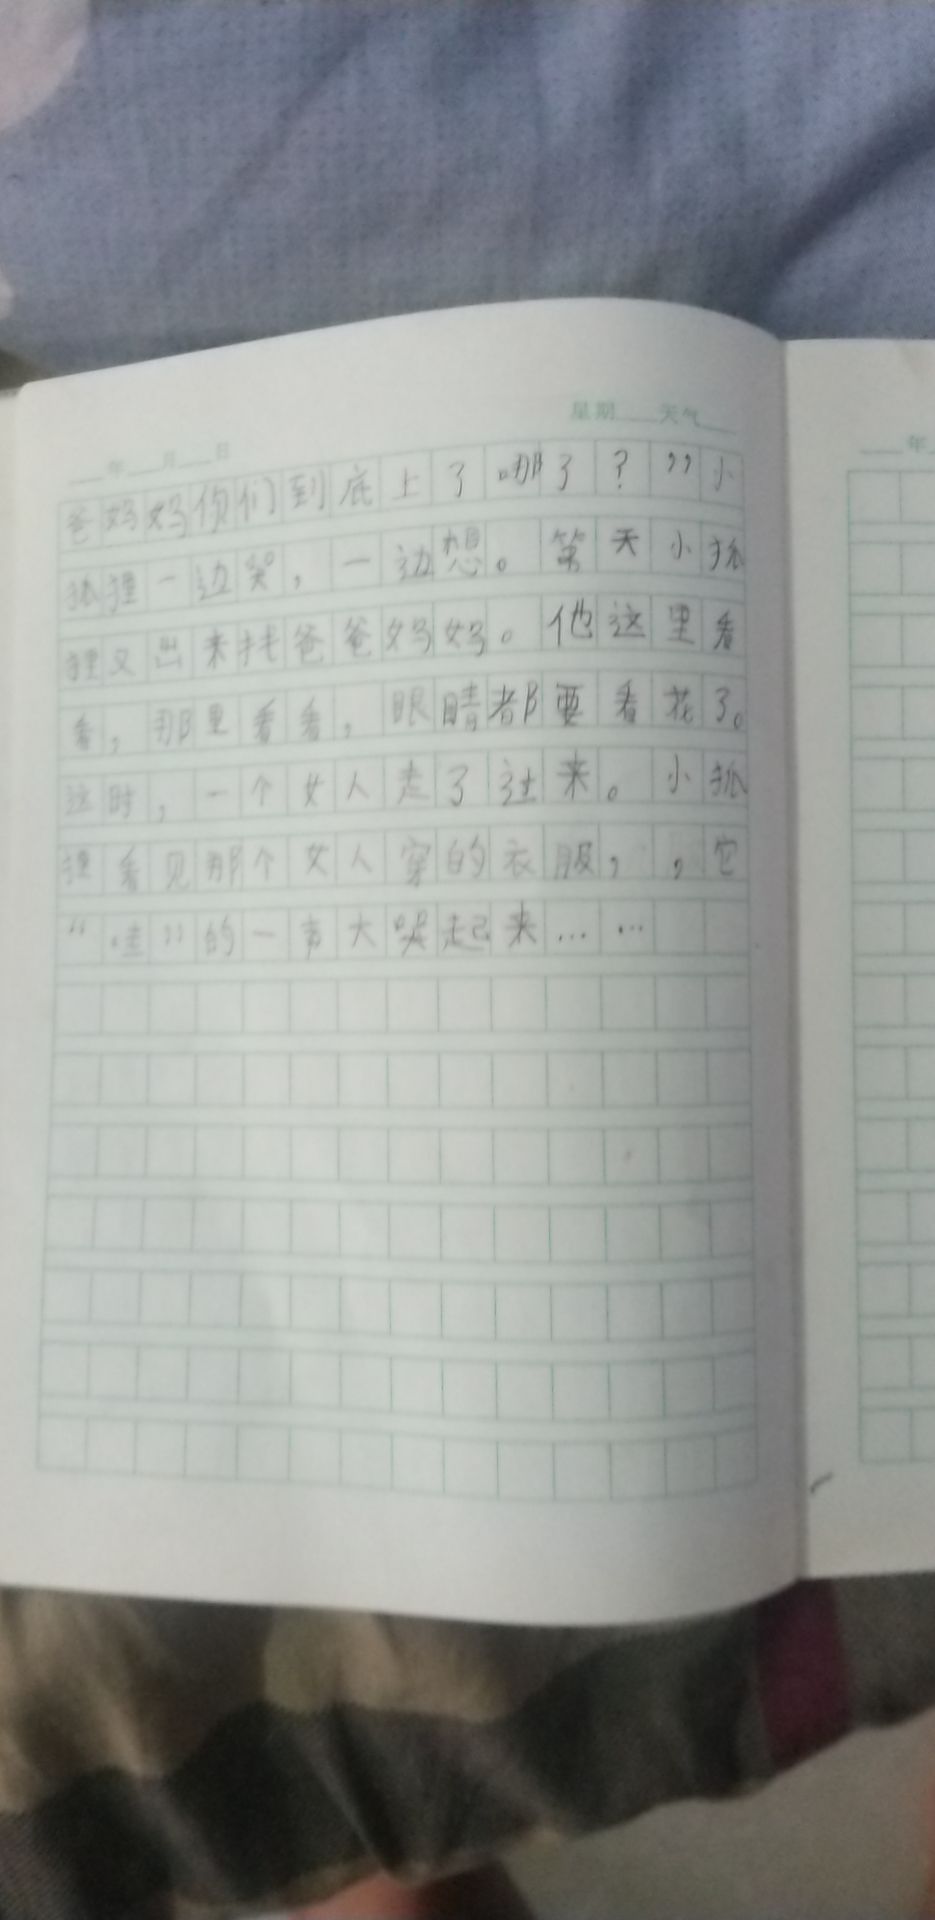 星期 天气
年 月 日
爸妈妈你们到底上了哪了？”小
狐狸一边哭，一边想。第天小狐
狸又出来找爸爸妈妈。他这里看
看，那里看看，眼睛都要看花了。
这时，一个女人走了过来。小狐
狸看见那个女人穿的衣服，，它
“哇”的一声大哭起来……
年